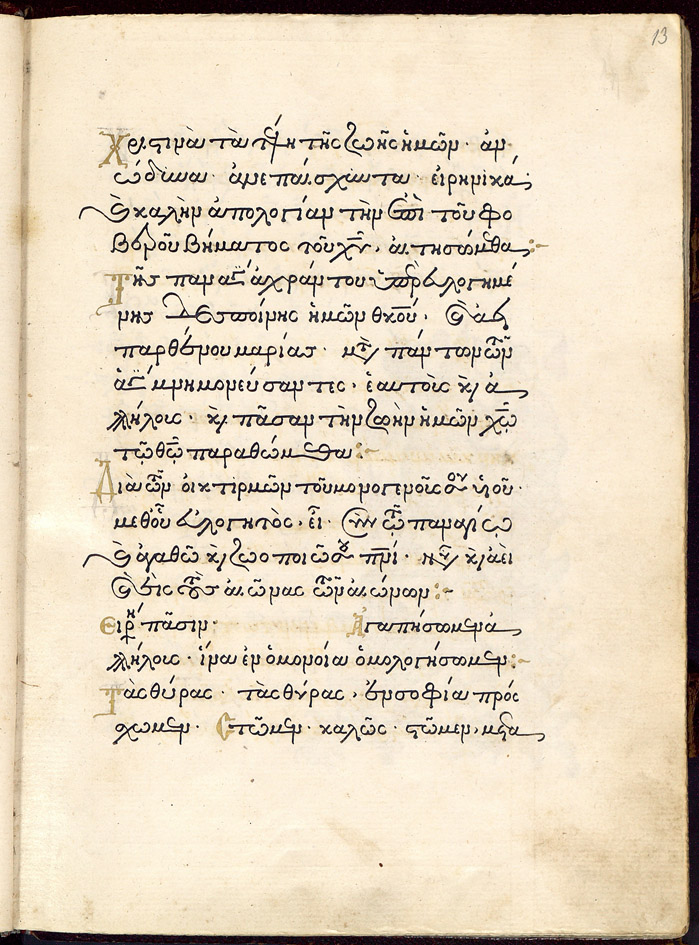 13
Χριστιανὰ τὰ τέλη τῆς ζωῆς ἡμῶν· ἀν
ώδυνα· ἀνεπαίσχυντα· εἰρηνικά,
καὶ καλὴν ἀπολογίαν τὴν ἐπὶ τοῦ φο
βεροῦ βήματος τοῦ χυ, αἰτησώμεθα:~
Τῆς παναγ ἀχράντου ὑπερευλογημέ
νης δεσποίνης ἡμῶν θκου· καὶ ἀει
παρθένου μαρίας· μετὰ πάντων τῶν
ἁγ μνημονεύσαντες, ἑαυτοὺς καὶ ἀ
λλήλους· καὶ πᾶσαν τὴν ζωὴν ἡμῶν χω
τῶ θω παραθώμεθα:~
Διὰ τῶν οἰκτιρμῶν τοῦ μονογενοῦς σου υἱοῦ·
μεθοῦ εὐλογητὸς, εἶ· σὺν τῶ παναγίω
καὶ ἀγαθῶ καὶ ζωοποιῶ σου πνι· νῦν καὶ ἀεὶ
καὶ εἰς τοὺς αἰῶνας τῶν αἰώνων:~
Εἰρη πᾶσιν· Ἀγαπήσωμεν ἀ
λλήλους· ἵνα ἐν ὁμονοία ὁμολογήσωμεν:~
Τὰς θύρας· τὰς θύρας, ἐν σοφία πρός
χωμεν· Στῶμεν καλῶς· στῶμεν, μετα